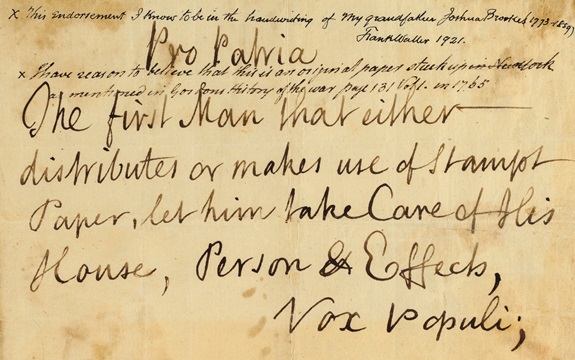 x This Endorsement I know to be in the handwriting of my grandfather Joshua
Frank Waller 1921.
Pro Patria
x I have reason to believe that this is an original paper stuck up in
mentioned in Gordons History of the war page 131 Vol 1. in 1765
The first Man that either
distributes or makes use of Stampt
Paper, let him take Care of His
House, Person & Effects,
Vox Populi;